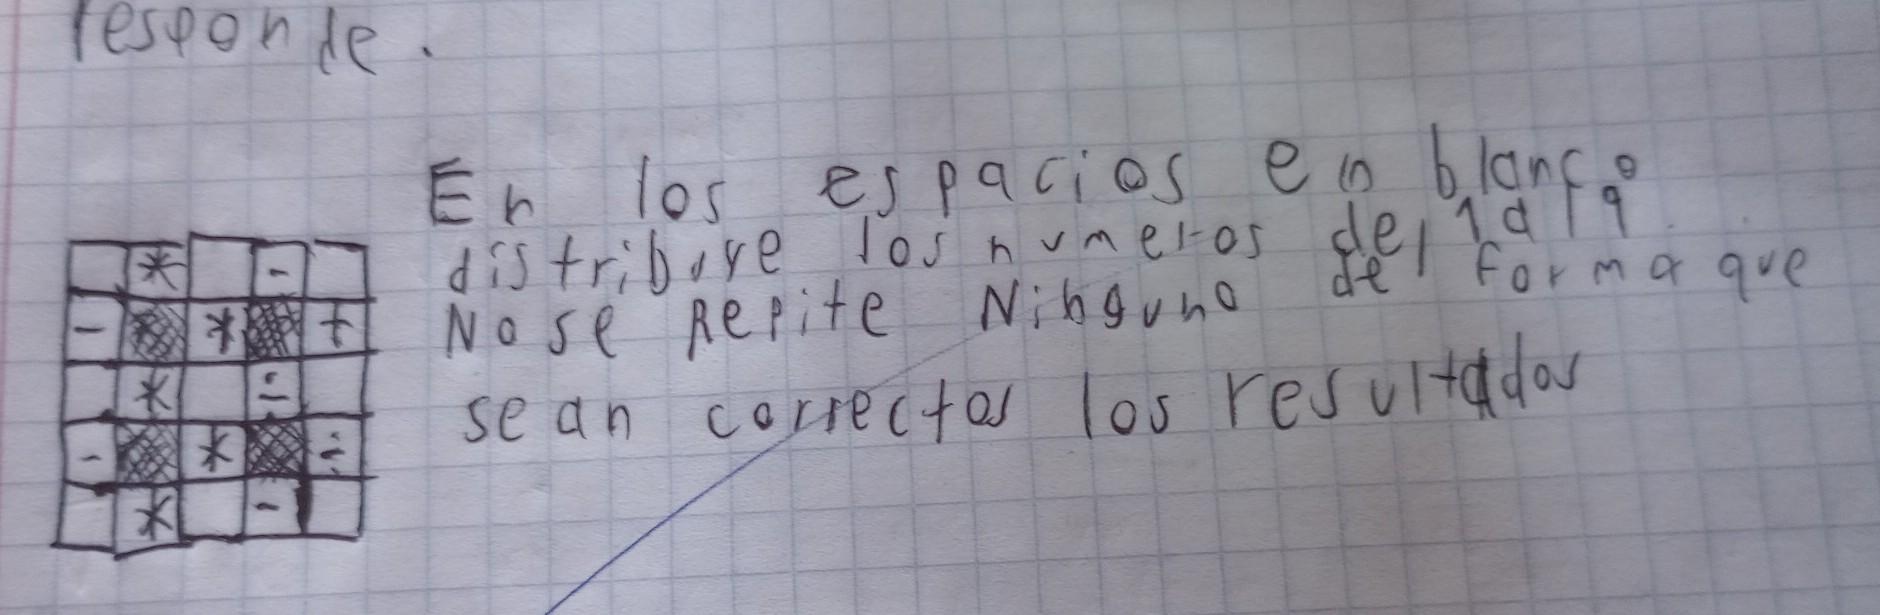 responde.
En los espacios en blanco
distribuye los numeros del 1 al 9
No se Repite Ninguno de forma que
sean correctos los resultados
* -
- * +
* ÷
- * ÷
* -